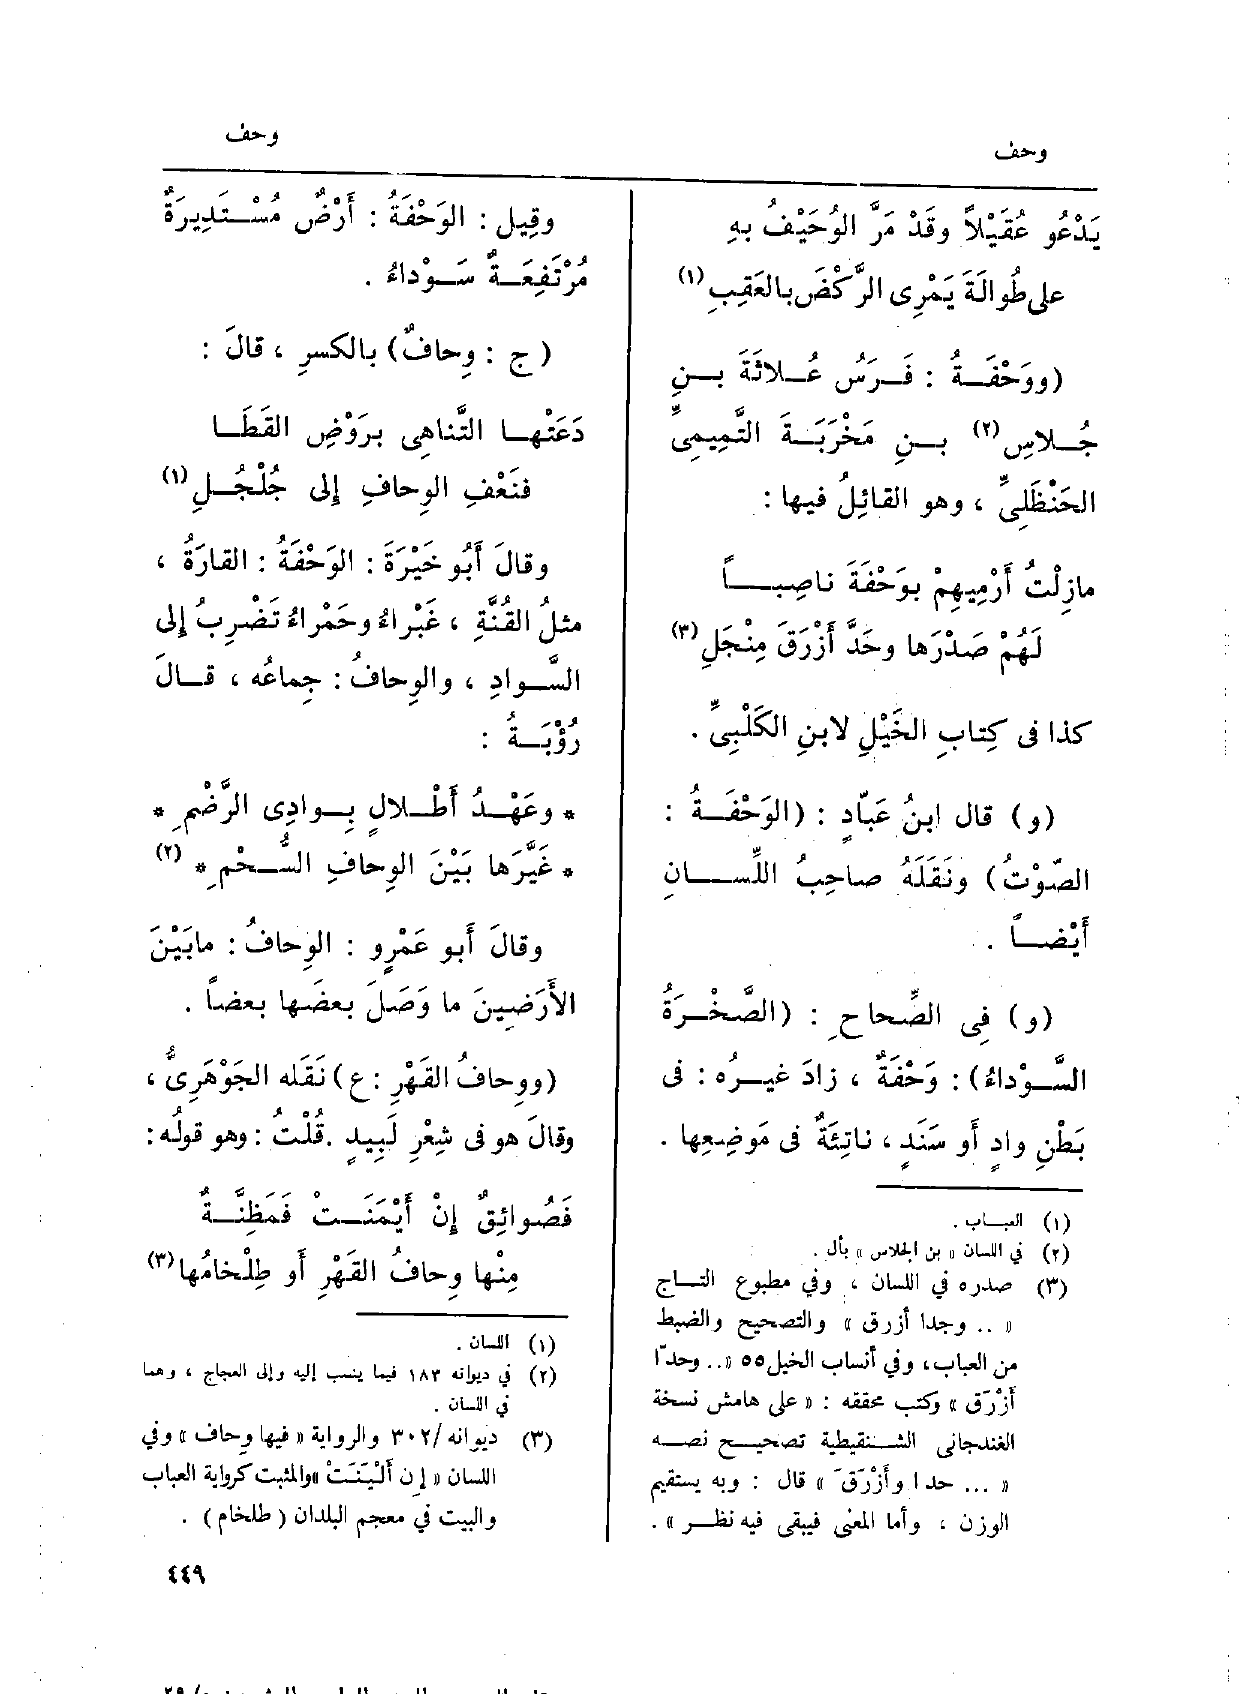 وحف
وحف
يَدْعُو عُقَيْلاً وقَدْ مَرَّ الوُحَيْفُ بِهِ
على طُوالَةَ يَمْرِى الرَّكْضَ بالعَقِبِ (١)
(ووَحْفَةُ : فَرَسُ عُلاثَةَ بنِ
جُلاسِ (٢) بنِ مَخْرَبَةَ التَّمِيمِىِّ
الحَنْظَلِىِّ ، وهو القائِلُ فيها :
مازِلْتُ أَرْمِيهِمْ بوَحْفَةَ ناصِباً
لَهُمْ صَدْرَها وحَدَّ أَزْرَقَ مِنْجَلِ (٣)
كذا فى كِتابِ الخَيْلِ لابنِ الكَلْبِىِّ .
(و) قال ابنُ عَبّادٍ : (الوَحْفَةُ :
الصَّوْتُ) ونَقَلَهُ صاحِبُ اللِّسانِ
أَيْضاً .
(و) فِى الصِّحاحِ : (الصَّخْرَةُ
السَّوْداءُ) : وَحْفَةٌ ، زادَ غيرُه : فى
بَطْنِ وادٍ أو سَنَدٍ ، ناتِئَةٌ فى مَوضِعِها .
(١) العباب .
(٢) في اللسان « بن الجلاس » بأل .
(٣) صدره في اللسان ، وفي مطبوع التاج
« .. وجدا أزرق » والتصحيح والضبط
من العباب، وفي أنساب الخيل ٥٥ « .. وحدّا
أزْرَق » وكتب محققه : « على هامش نسخة
الغندجانى الشنقيطية تصحيح نصه
« ... حدا وأزْرَقَ » قال : وبه يستقيم
الوزن ، وأما المعنى فيبقى فيه نظر » .
وقِيل : الوَحْفَةُ : أَرْضٌ مُسْتَدِيرَةٌ
مُرْتَفِعَةٌ سَوْداءُ .
( ج : وِحافٌ) بالكسرِ ، قالَ :
دَعَتْها التَّناهِى برَوْضِ القَطَا
فنَعْفِ الوِحافِ إلى جُلْجُلِ (١)
وقالَ أَبُو خَيْرَةَ : الوَحْفَةُ : القارَةُ ،
مثلُ القُنَّةِ ، غَبْراءُ وحَمْراءُ تَضْرِبُ إلى
السَّوادِ ، والوِحافُ : جِماعُه ، قالَ
رُؤْبَةُ :
* وعَهْدُ أَطْلالٍ بِوادِى الرَّضْمِ *
* غَيَّرَها بَيْنَ الوِحافِ السُّحْمِ * (٢)
وقالَ أَبو عَمْرٍو : الوِحافُ : مابَيْنَ
الأَرَضِينَ ما وَصَلَ بعضُها بعضاً .
(ووِحافُ القَهْرِ : ع) نَقَله الجَوْهَرِىُّ ،
وقالَ هو فى شِعْرِ لَبِيدٍ .قُلْتُ : وهو قولُه :
فَصُوائِقٌ إِنْ أَيْمَنَت فَمَظِنَّةٌ
مِنْها وِحافُ القَهْرِ أو طِلْخامُها (٣)
(١) اللسان .
(٢) في ديوانه ١٨٣ فيما ينسب إليه وإلى العجاج ، وهما
في اللسان .
(٣) ديوانه /٣٠٢ والرواية « فيها وحاف » وفي
اللسان « إن ألْيَنَتْ »والمثبت كرواية العباب
والبيت في معجم البلدان ( طلخام ) .
٤٤٩